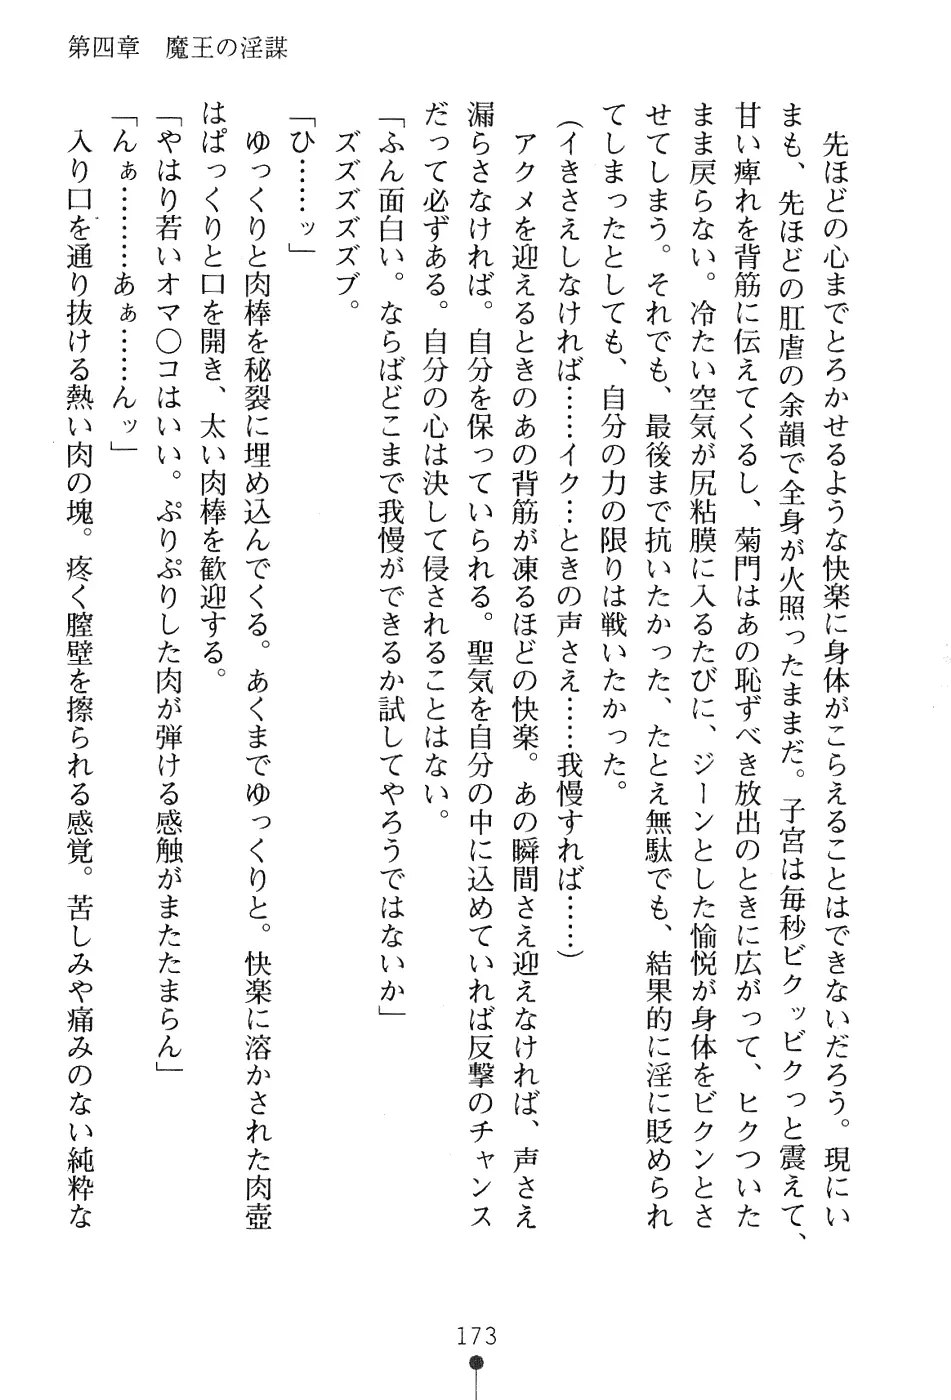 第四章　魔王の淫謀
　先ほどの心までとろかせるような快楽に身体がこらえることはできないだろう。現にい
まも、先ほどの肛虐の余韻で全身が火照ったままだ。子宮は毎秒ビクッビクっと震えて、
甘い痺れを背筋に伝えてくるし、菊門はあの恥ずべき放出のときに広がって、ヒクついた
まま戻らない。冷たい空気が尻粘膜に入るたびに、ジーンとした愉悦が身体をビクンとさ
せてしまう。それでも、最後まで抗いたかった、たとえ無駄でも、結果的に淫に貶められ
てしまったとしても、自分の力の限りは戦いたかった。
（イきさえしなければ……イク…ときの声さえ……我慢すれば……）
　アクメを迎えるときのあの背筋が凍るほどの快楽。あの瞬間さえ迎えなければ、声さえ
漏らさなければ。自分を保っていられる。聖気を自分の中に込めていれば反撃のチャンス
だって必ずある。自分の心は決して侵されることはない。
「ふん面白い。ならばどこまで我慢ができるか試してやろうではないか」
　ズズズズズブ。
「ひ……ッ」
　ゆっくりと肉棒を秘裂に埋め込んでくる。あくまでゆっくりと。快楽に溶かされた肉壺
はぱっくりと口を開き、太い肉棒を歓迎する。
「やはり若いオマ〇コはいい。ぷりぷりした肉が弾ける感触がまたたまらん」
「んぁ………あぁ……んッ」
　入り口を通り抜ける熱い肉の塊。疼く膣壁を擦られる感覚。苦しみや痛みのない純粋な
173